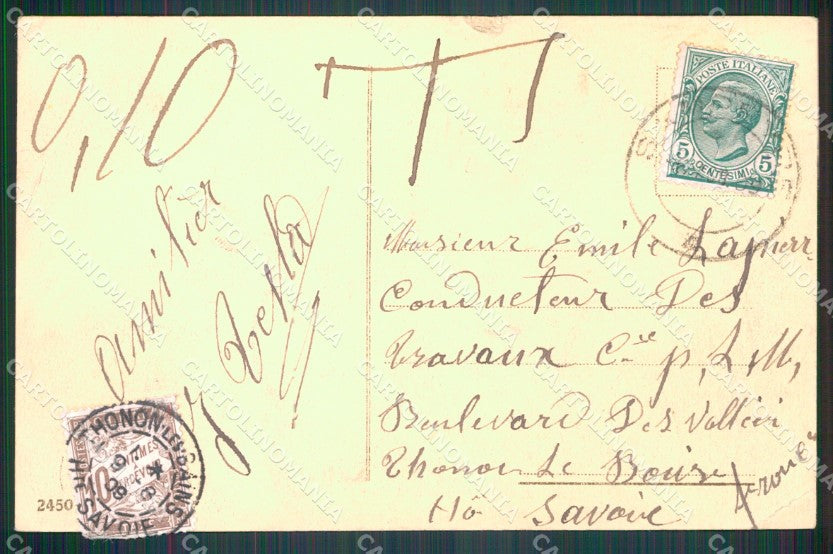 0,10
T
POSTE ITALIANE
5 CENTESIMI 5
Monsieur Emile Lapierr
Conducteur Des
travaux Cie p, L. M,
Boulevard Des Vallées
Thonon Le Bains
Hô Savoie
amitiés
THONON LES BAINS
Hte SAVOIE
10 CENTIMES
2450
CARTOLINOMANIA